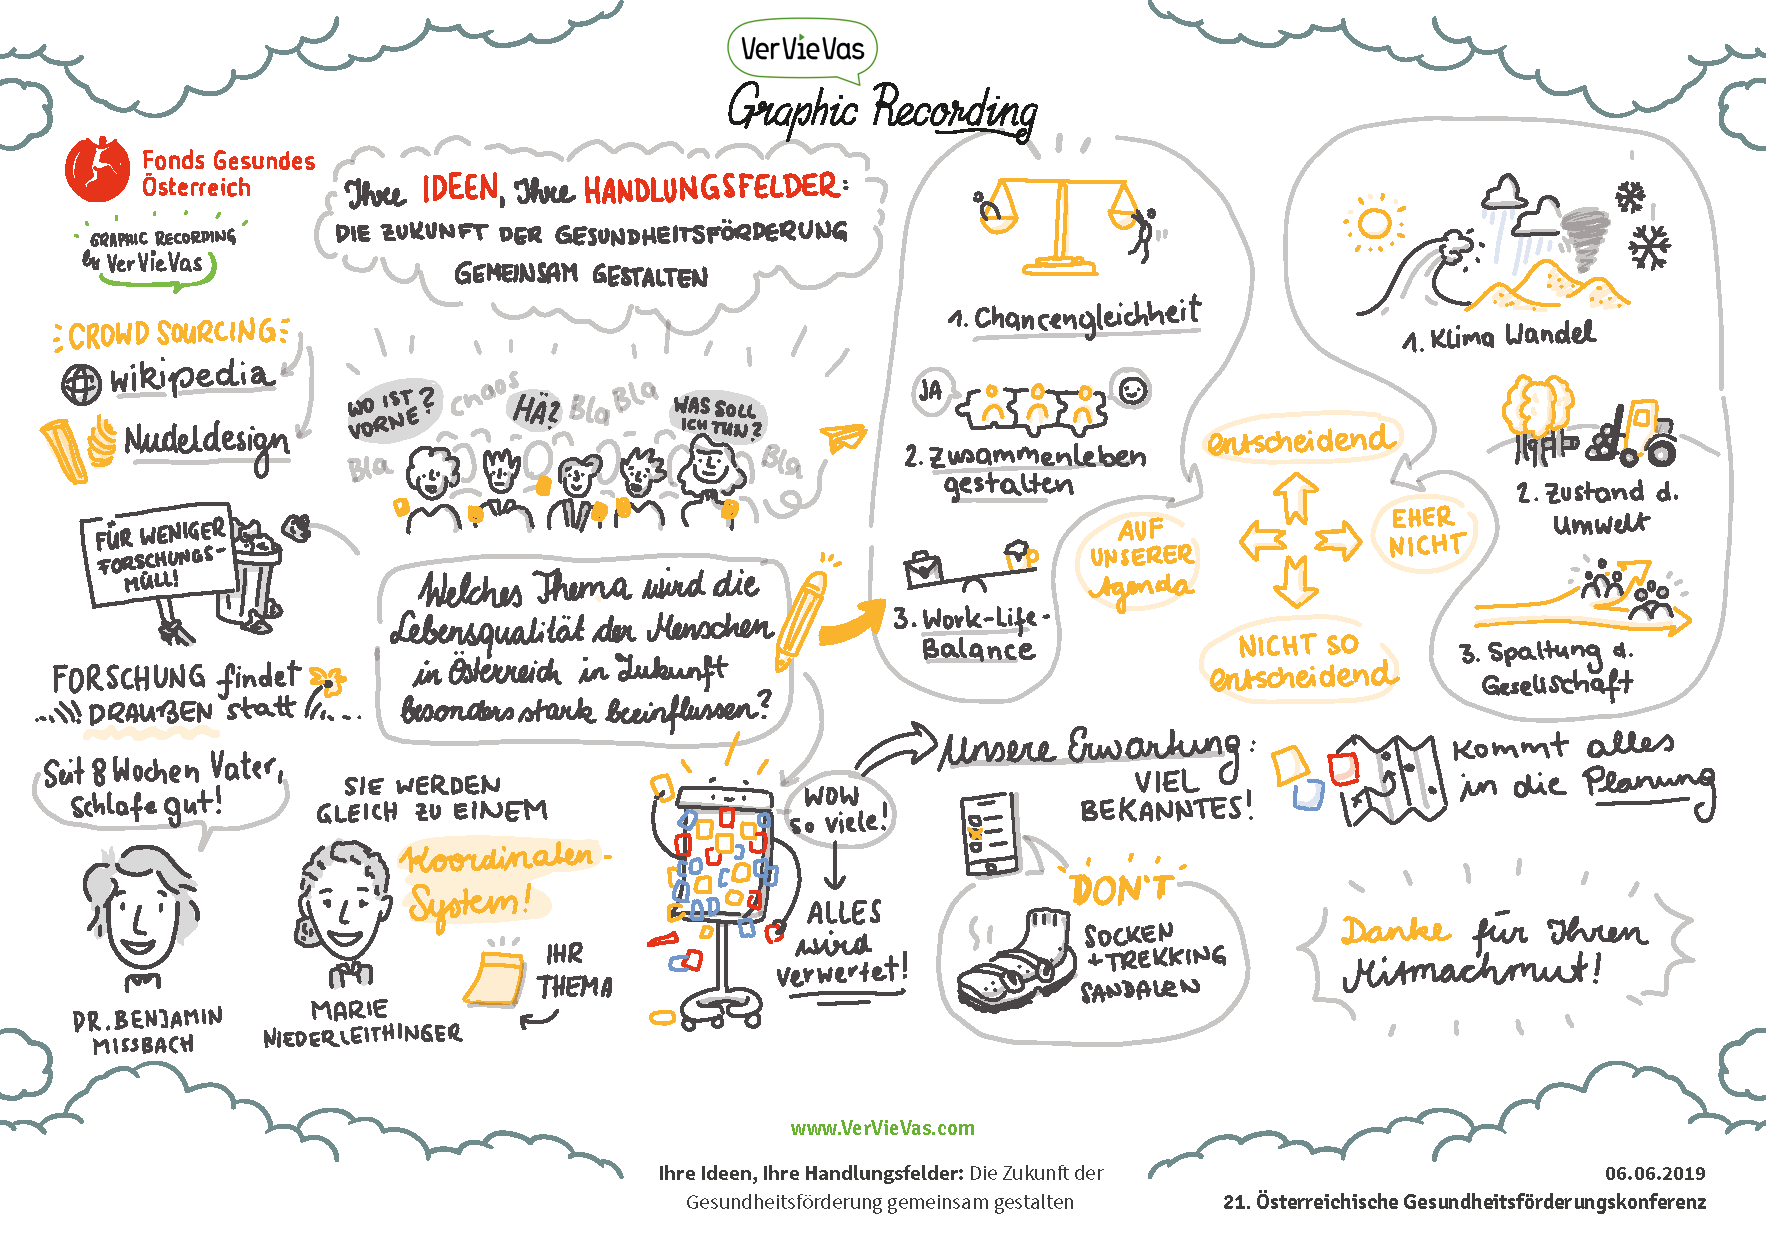 VerVieVas
Graphic Recording
Fonds Gesundes
Österreich
GRAPHIC RECORDING
by VerVieVas
Ihre IDEEN, Ihre HANDLUNGSFELDER:
DIE ZUKUNFT DER GESUNDHEITSFÖRDERUNG
GEMEINSAM GESTALTEN
CROWD SOURCING:
Wikipedia
Nudeldesign
FÜR WENIGER
FORSCHUNGS-
MÜLL!
FORSCHUNG findet
DRAUẞEN statt
Seit 8 Wochen Vater,
Schlafe gut!
DR. BENJAMIN
MISSBACH
SIE WERDEN
GLEICH ZU EINEM
Koordinaten-
System!
MARIE
NIEDERLEITHINGER
IHR
THEMA
WO IST
VORNE?
chaos
HÄ?
Bla
Bla
WAS SOLL
ICH TUN?
Bla
Bla
Welches Thema wird die
Lebensqualität der Menschen
in Österreich in Zukunft
besonders stark beeinflussen?
WOW
so viele!
ALLES
wird
verwertet!
1. Chancengleichheit
JA
2. Zusammenleben
gestalten
3. Work-Life-
Balance
entscheidend
AUF
UNSERER
Agenda
EHER
NICHT
NICHT SO
entscheidend
1. Klima Wandel
2. Zustand d.
Umwelt
3. Spaltung d.
Gesellschaft
Unsere Erwartung:
VIEL
BEKANNTES!
kommt alles
in die Planung
DON'T
SOCKEN
+ TREKKING
SANDALEN
Danke für Ihren
Mitmachmut!
www.VerVieVas.com
Ihre Ideen, Ihre Handlungsfelder: Die Zukunft der
Gesundheitsförderung gemeinsam gestalten
06.06.2019
21. Österreichische Gesundheitsförderungskonferenz